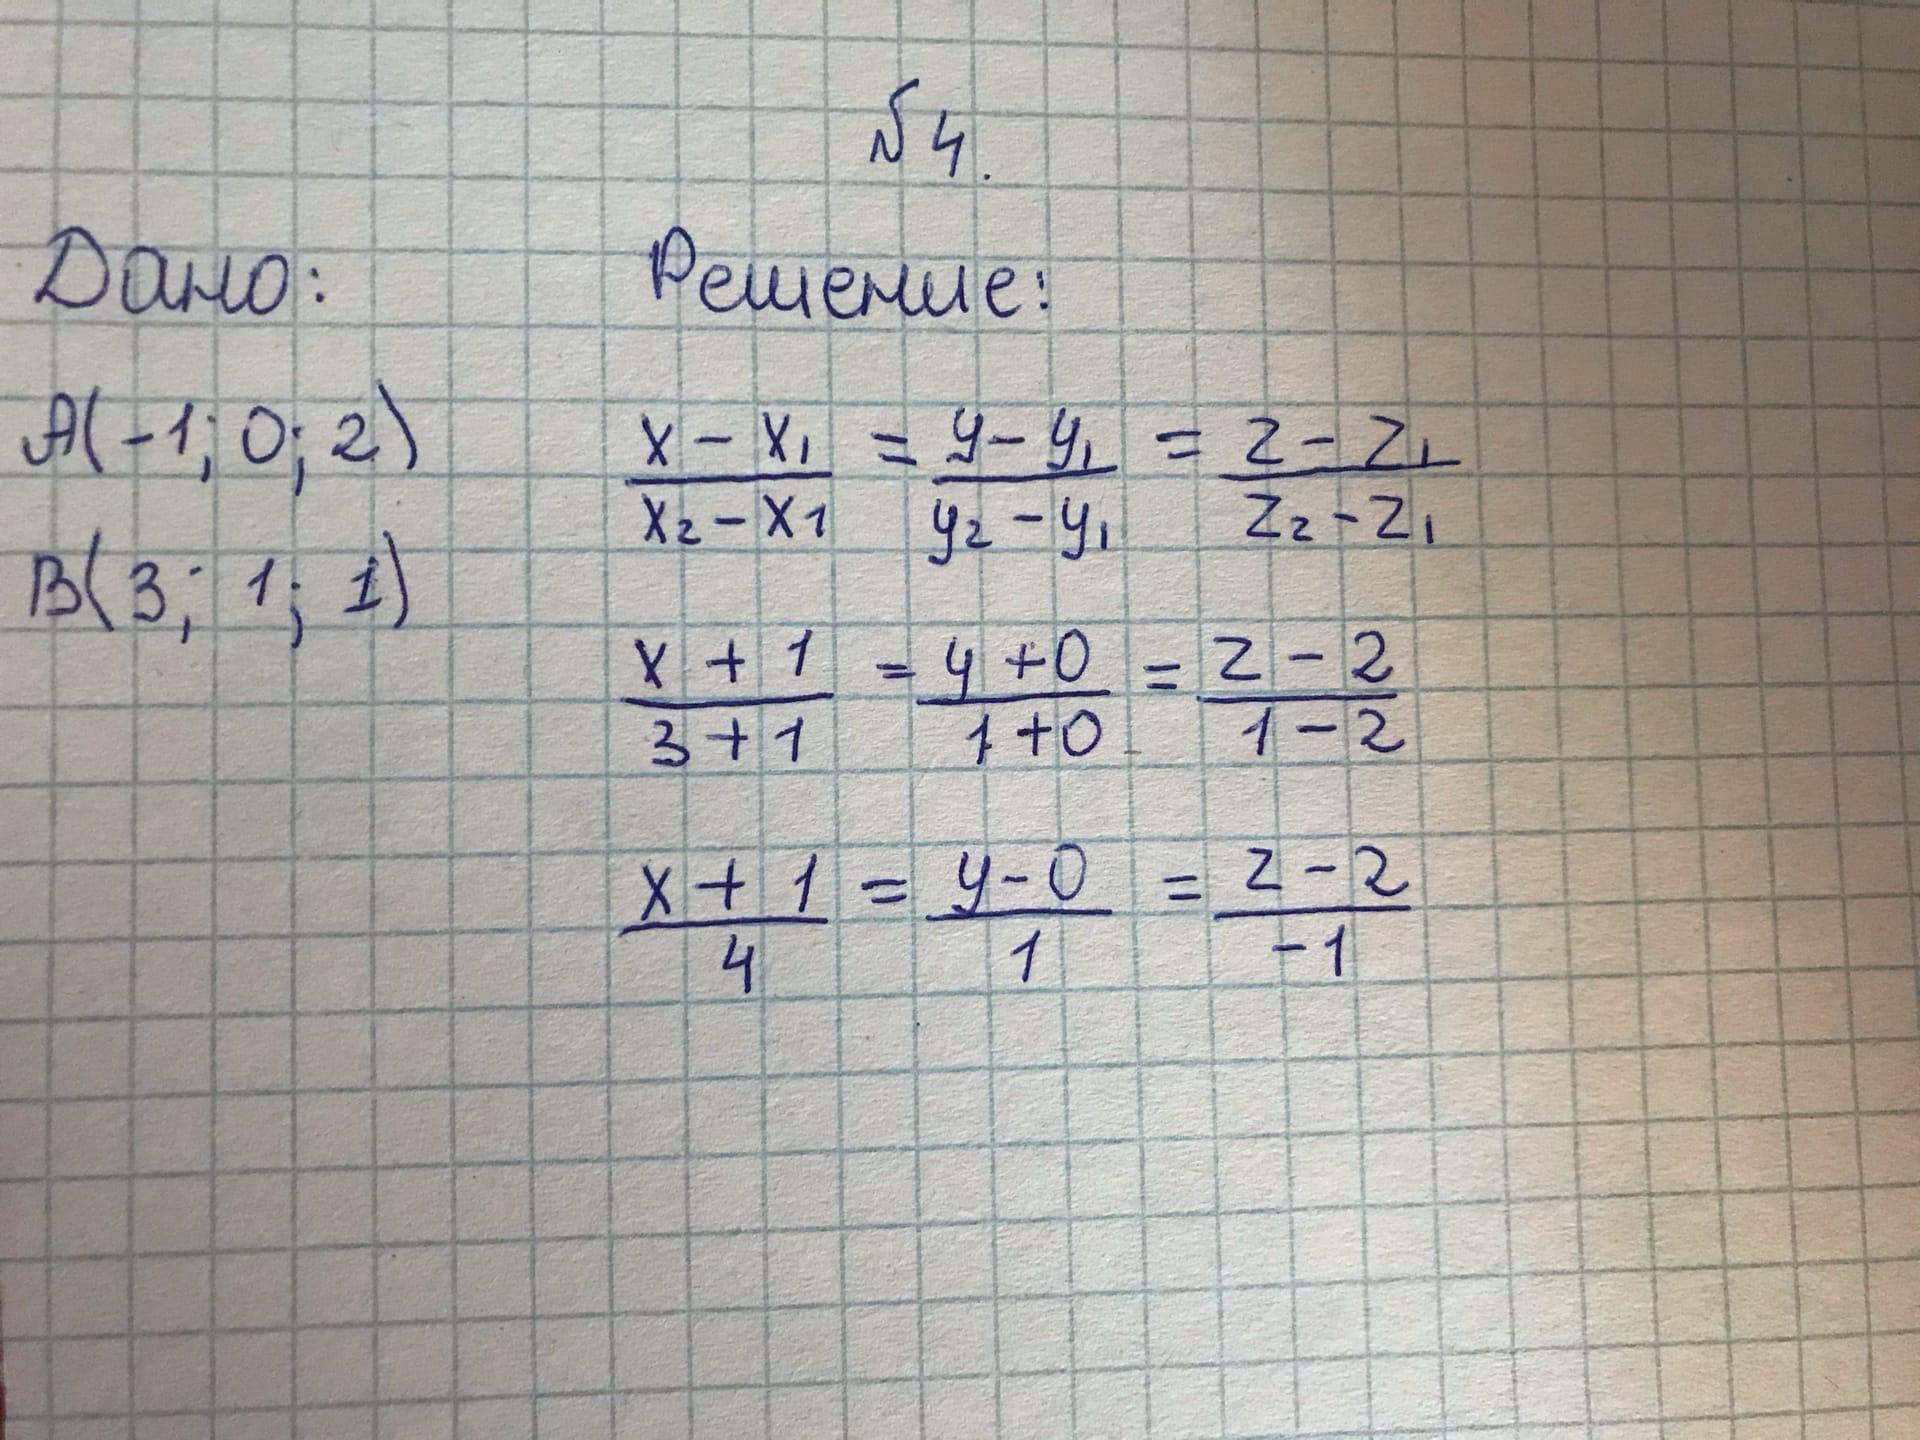 №4.
Дано:
A(-1; 0; 2)
B(3; 1; 1)
Решение:
x - x₁ / x₂ - x₁ = y - y₁ / y₂ - y₁ = z - z₁ / z₂ - z₁
x + 1 / 3 + 1 = y + 0 / 1 + 0 = z - 2 / 1 - 2
x + 1 / 4 = y - 0 / 1 = z - 2 / -1